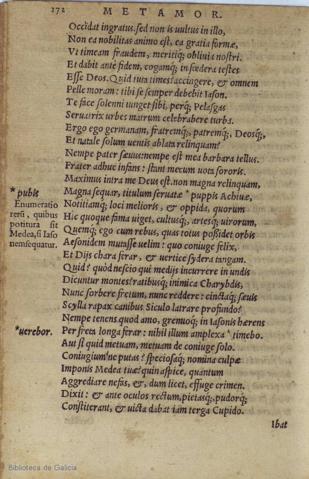 172 METAMOR.
Occidat ingratus. sed non is uultus in illo,
Non ea nobilitas animo est, ea gratia formæ,
Vt timeam fraudem, meritiq; obliuia nostri.
Et dabit ante fidem, cogamq; in fœdera testes
Esse Deos. Quid tuta times? accingere, et omnem
Pelle moram: tibi se semper debebit Iason.
Te face solenni iunget sibi, perq; Pelasgas
Seruatrix urbes matrum celebrabere turba.
Ergo ego germanam, fratremq;, patremq;, Deosq;,
Et natale solum uentis ablata relinquam?
Nempe pater sæuus: nempe est mea barbara tellus.
Frater adhuc infans: stant mecum uota sororis.
Maximus intra me Deus est. non magna relinquam,
* pubis
Magna sequar, titulum seruatæ * puppis Achiuæ,
Enumeratio
Notitiamq; loci melioris, et oppida, quorum
rerũ, quibus
Hic quoque fama uiget, cultusq;, artesq; uirorum,
potitura sit
Quemq; ego cum rebus, quas totus possidet orbis
Medea, si Iaso
Aesonidem mutasse uelim: quo coniuge felix,
nem sequatur.
Et Dijs chara ferar, et uertice sydera tangam.
Quid? quòd nescio qui medijs incurrere in undis
Dicuntur montes? ratibusq; inimica Charybdis,
Nunc sorbere fretum, nunc reddere: cinctaq; sæuis
Scylla rapax canibus Siculo latrare profundo?
Nempe tenens quod amo, gremioq; in Iasonis hærens
*uerebor.
Per freta longa ferar: nihil illum amplexa * timebo.
Aut si quid metuam, metuam de coniuge solo.
Coniugium'ne putas? speciosaq; nomina culpæ
Imponis Medea tuæ? quin aspice, quantum
Aggrediare nefas, et, dum licet, effuge crimen.
Dixit: et ante oculos rectum, pietasq;, pudorq;
Constiterant, et uicta dabat iam terga Cupido.
Ibat
Biblioteca de Galicia